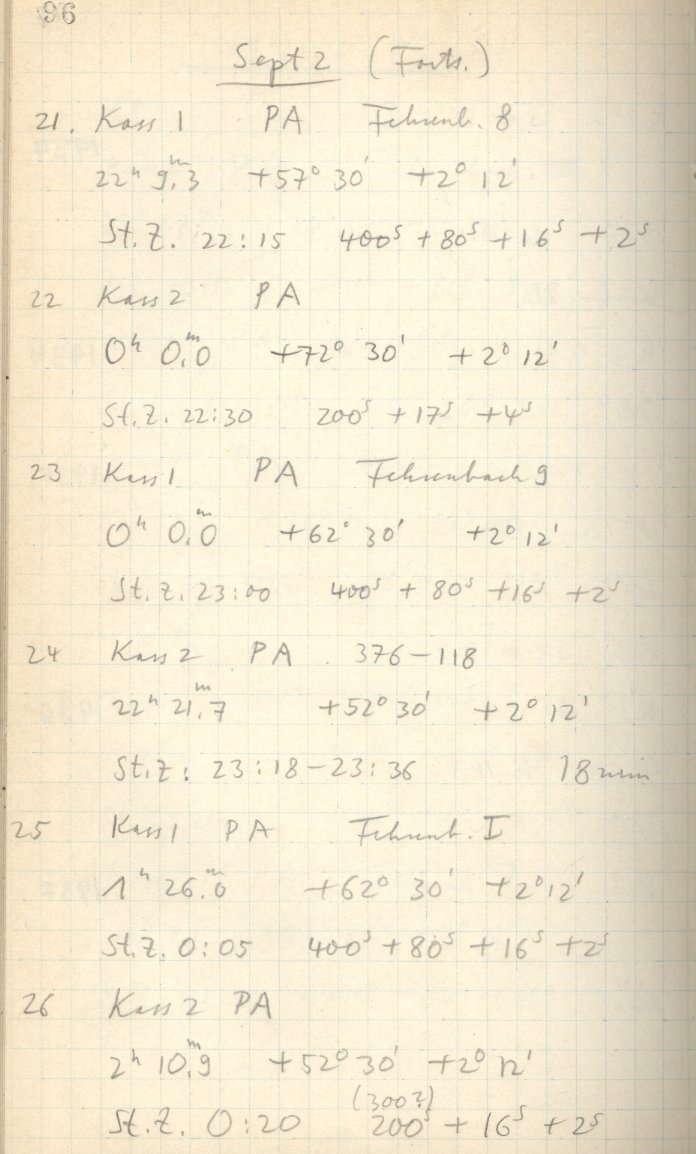 96
Sept 2 (Forts.)
21. Kass 1 PA Fehrenb. 8
22ʰ 9ᵐ.3 +57° 30' +2° 12'
St.Z. 22:15 400ˢ + 80ˢ + 16ˢ + 2ˢ
22 Kass 2 PA
0ʰ 0ᵐ.0 +72° 30' +2° 12'
St.Z. 22:30 200ˢ + 17ˢ + 4ˢ
23 Kass 1 PA Fehrenbach 9
0ʰ 0ᵐ.0 +62° 30' +2° 12'
St.Z. 23:00 400ˢ + 80ˢ + 16ˢ + 2ˢ
24 Kass 2 PA 376–118
22ʰ 21ᵐ.7 +52° 30' +2° 12'
St.Z: 23:18–23:36 18 min
25 Kass 1 PA Fehrenb. I
1ʰ 26ᵐ.0 +62° 30' +2° 12'
St.Z. 0:05 400ˢ + 80ˢ + 16ˢ + 2ˢ
26 Kass 2 PA
2ʰ 10ᵐ.9 +52° 30' +2° 12'
(300?)
St.Z. 0:20 200ˢ + 16ˢ + 2ˢ